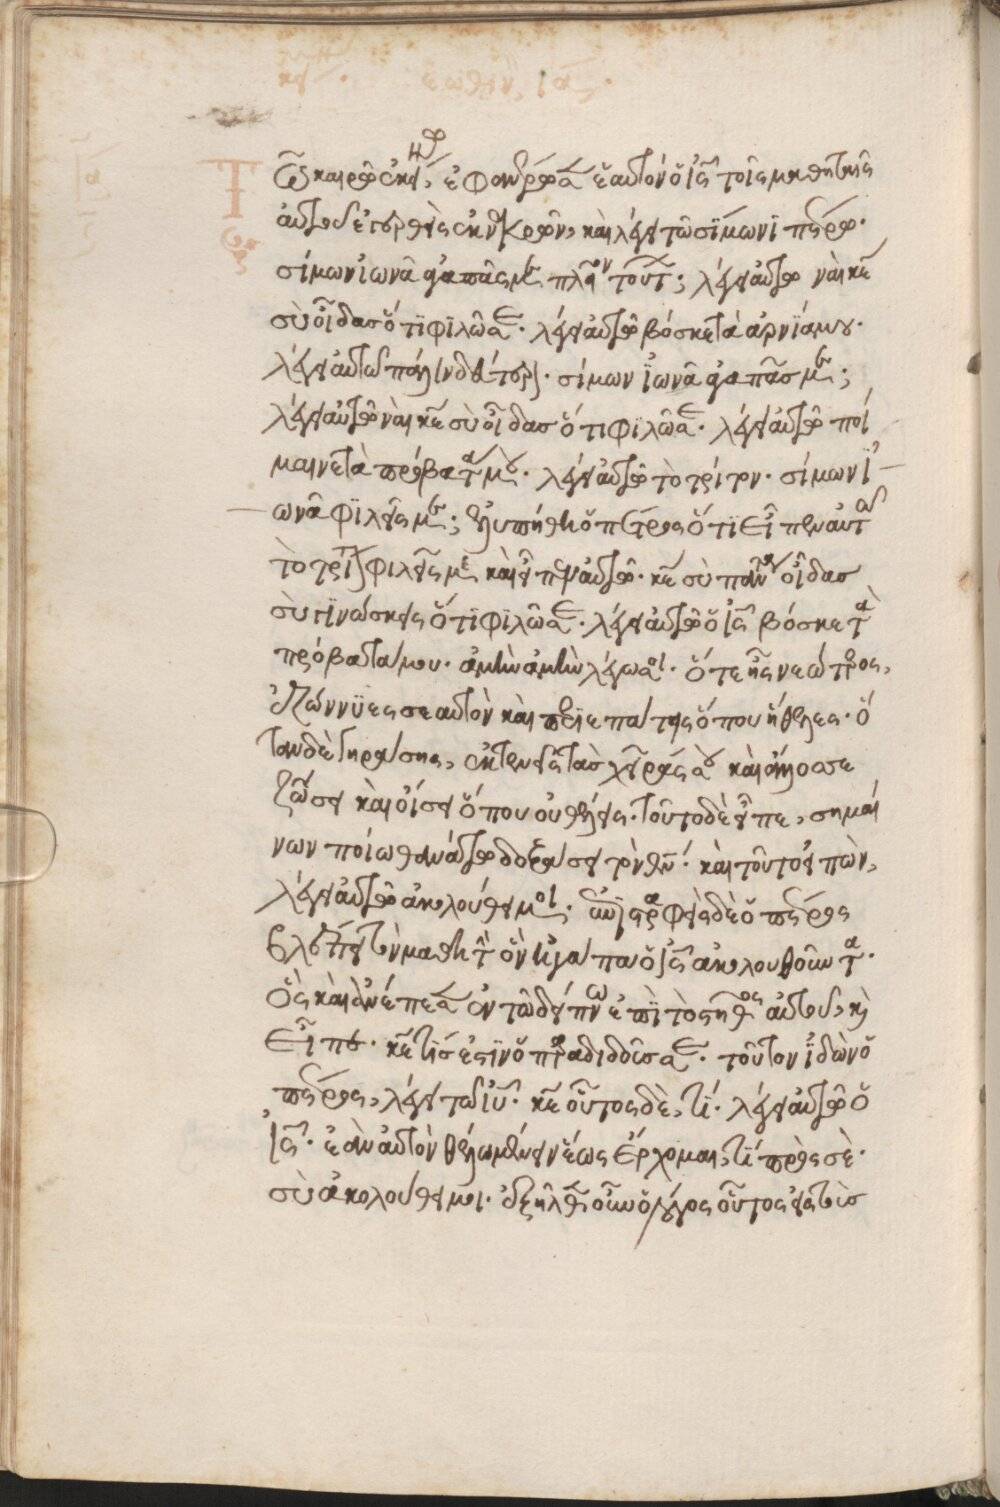 ἑωθινὸν ια
Τῷ καιρῷ ἐκείνῳ, ἐφανέρωσεν ἑαυτὸν ὁ ις τοῖς μαθηταῖς
αὐτοῦ ἐγερθεὶς ἐκ νεκρῶν, καὶ λέγει τῶ σϊμωνϊ πέτρω·
σίμων ϊωνᾶ ἀγαπᾶς με πλεῖον τούτων; λέγει αὐτῶ ναὶ κε
σὺ οἶδας ὅτϊ φϊλῶ σε· λέγει αὐτῶ βόσκε τὰ ἀρνϊά μου·
λέγει αὐτῶ πάλιν δεύτερον· σίμων ϊωνᾶ ἀγαπᾶσ με;
λέγει αὐτῶ ναὶ κε σὺ οἶδασ ὅτι φϊλῶ σε· λέγει αὐτῶ ποί
μαινε τὰ πρόβατά μου· λέγει αὐτῶ τὸ τρίτον· σίμων ϊ
ωνᾶ φϊλεῖς με; ἐλυπήθη ὁ πέτρος ὅτϊ εἶπεν αὐτῶ
τὸ τρίτον φιλεῖς με καὶ εἶπεν αὐτῶ· κε σὺ πάντα οἶδασ
σὺ γϊνώσκεις ὅτϊ φϊλῶ σε· λέγει αὐτῶ ὁ ις βόσκε τὰ
πρόβατα μου· ἀμὴν ἀμὴν λέγω σοι· ὅτε ἦς νεώτερος,
ἐζώννϋες σεαυτὸν καὶ περϊεπάτεις ὅπου ἤθελες· ὅ
ταν δὲ γηράσης, ἐκτενεῖς τὰσ χεῖράς σου καὶ ἄλλος σε
ζώσει καὶ οἴσει ὅπου οὐ θέλεις· τοῦτο δὲ εἶπε, σημαί
νων ποίω θανάτω δοξάσει τὸν θν· καὶ τοῦτο εἰπὼν,
λέγει αὐτῶ ἀκολούθει μοι· ἐπϊστραφεὶς δὲ ὁ πέτρος
βλέπει τὸν μαθητὴν ὃν ἠγάπα ὁ ις ἀκολουθοῦντα·
ὃς καὶ ἀνέπεσεν ἐν τῶ δείπνω ἐπϊ τὸ στῆθος αὐτοῦ, κὶ
εἶπε· κε τίσ ἐστϊν ὁ παραδιδούσ σε· τοῦτον ϊδὼν ὁ
πέτρος, λέγει τῶ ιυ· κε οὗτος δὲ, τϊ· λέγει αὐτῶ ὁ
ις· ἐὰν αὐτὸν θέλω μένειν ἕως ἔρχομαι, τϊ πρὸς σὲ·
σὺ ἀκολούθει μοι· ἐξῆλθεν οὖν ὁ λόγος οὗτος εἰς τοὺσ